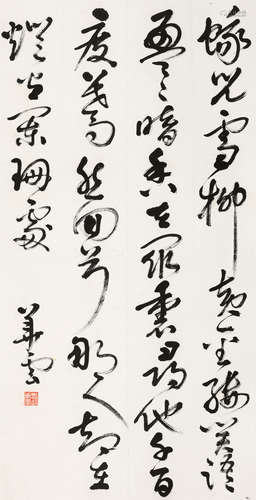 蛾兒雪柳黃金縷笑語
盈盈暗香去眾裏尋他千百
度驀然回首那人卻在
燈火闌珊處